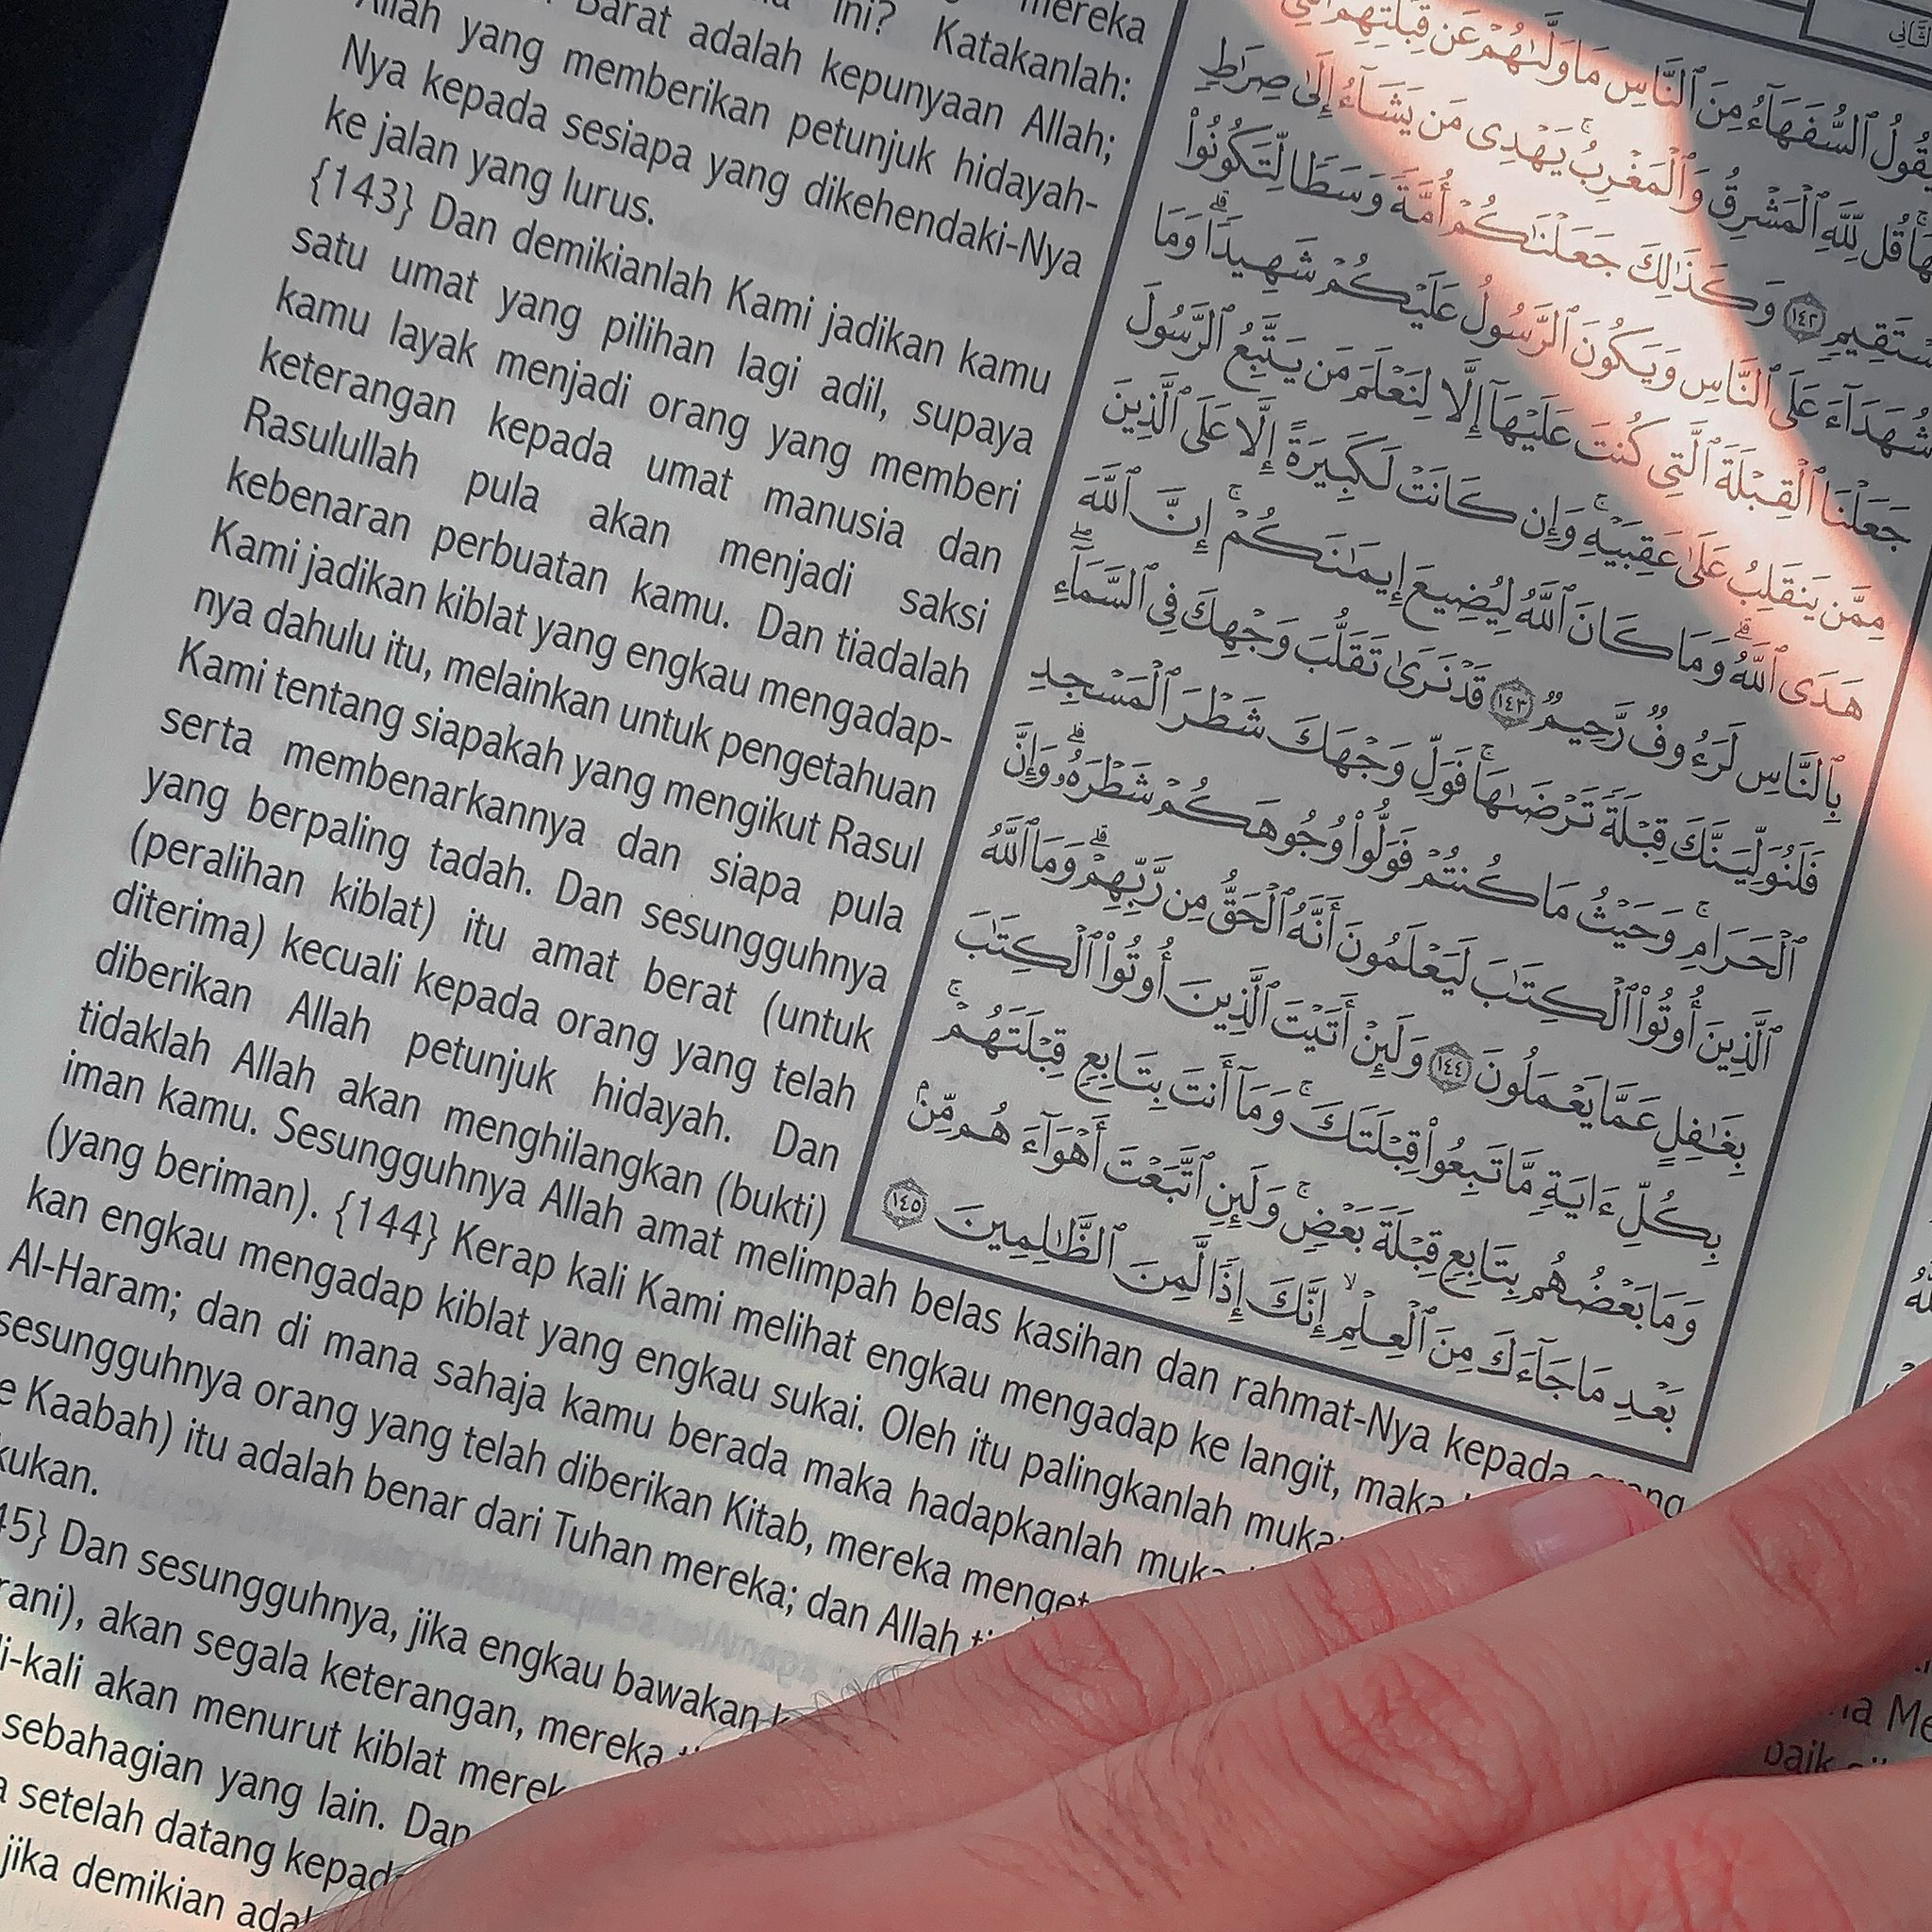 mereka
ini? Katakanlah:
Barat adalah kepunyaan Allah;
Allah yang memberikan petunjuk hidayah-
Nya kepada sesiapa yang dikehendaki-Nya
ke jalan yang lurus.
{143} Dan demikianlah Kami jadikan kamu
satu umat yang pilihan lagi adil, supaya
kamu layak menjadi orang yang memberi
keterangan kepada umat manusia dan
Rasulullah pula akan menjadi saksi
kebenaran perbuatan kamu. Dan tiadalah
Kami jadikan kiblat yang engkau mengadap-
nya dahulu itu, melainkan untuk pengetahuan
Kami tentang siapakah yang mengikut Rasul
serta membenarkannya dan siapa pula
yang berpaling tadah. Dan sesungguhnya
(peralihan kiblat) itu amat berat (untuk
diterima) kecuali kepada orang yang telah
diberikan Allah petunjuk hidayah. Dan
tidaklah Allah akan menghilangkan (bukti)
iman kamu. Sesungguhnya Allah amat melimpah belas kasihan dan rahmat-Nya kepada
(yang beriman). {144} Kerap kali Kami melihat engkau mengadap ke langit, maka
kan engkau mengadap kiblat yang engkau sukai. Oleh itu palingkanlah
Al-Haram; dan di mana sahaja kamu berada maka hadapkanlah
sesungguhnya orang yang telah diberikan Kitab, mereka
Kaabah) itu adalah benar dari Tuhan mereka; dan Allah
kukan.
45} Dan sesungguhnya, jika engkau bawakan
rani), akan segala keterangan, mereka
i-kali akan menurut kiblat
sebahagian yang lain. Dan
setelah datang
jika demikian
ٱلثَّانِي
ٱلسُّفَهَآءُ مِنَ ٱلنَّاسِ مَا وَلَّىٰهُمْ عَن قِبْلَتِهِمُ
قُل لِّلَّهِ ٱلْمَشْرِقُ وَٱلْمَغْرِبُ ۚ يَهْدِى مَن يَشَآءُ إِلَىٰ صِرَٰطٍ
١٤٢ وَكَذَٰلِكَ جَعَلْنَٰكُمْ أُمَّةً وَسَطًا لِّتَكُونُوا۟
شُهَدَآءَ عَلَى ٱلنَّاسِ وَيَكُونَ ٱلرَّسُولُ عَلَيْكُمْ شَهِيدًا ۗ وَمَا
جَعَلْنَا ٱلْقِبْلَةَ ٱلَّتِى كُنتَ عَلَيْهَآ إِلَّا لِنَعْلَمَ مَن يَتَّبِعُ ٱلرَّسُولَ
مِمَّن يَنقَلِبُ عَلَىٰ عَقِبَيْهِ ۚ وَإِن كَانَتْ لَكَبِيرَةً إِلَّا عَلَى ٱلَّذِينَ
هَدَى ٱللَّهُ ۗ وَمَا كَانَ ٱللَّهُ لِيُضِيعَ إِيمَٰنَكُمْ ۚ إِنَّ ٱللَّهَ
بِٱلنَّاسِ لَرَءُوفٌ رَّحِيمٌ ١٤٣ قَدْ نَرَىٰ تَقَلُّبَ وَجْهِكَ فِى ٱلسَّمَآءِ ۖ
فَلَنُوَلِّيَنَّكَ قِبْلَةً تَرْضَىٰهَا ۚ فَوَلِّ وَجْهَكَ شَطْرَ ٱلْمَسْجِدِ
ٱلْحَرَامِ ۚ وَحَيْثُ مَا كُنتُمْ فَوَلُّوا۟ وُجُوهَكُمْ شَطْرَهُۥ ۗ وَإِنَّ
ٱلَّذِينَ أُوتُوا۟ ٱلْكِتَٰبَ لَيَعْلَمُونَ أَنَّهُ ٱلْحَقُّ مِن رَّبِّهِمْ ۗ وَمَا ٱللَّهُ
بِغَٰفِلٍ عَمَّا يَعْمَلُونَ ١٤٤ وَلَئِنْ أَتَيْتَ ٱلَّذِينَ أُوتُوا۟ ٱلْكِتَٰبَ
بِكُلِّ ءَايَةٍ مَّا تَبِعُوا۟ قِبْلَتَكَ ۚ وَمَآ أَنتَ بِتَابِعٍ قِبْلَتَهُمْ ۚ
وَمَا بَعْضُهُم بِتَابِعٍ قِبْلَةَ بَعْضٍ ۚ وَلَئِنِ ٱتَّبَعْتَ أَهْوَآءَهُم مِّنۢ
بَعْدِ مَا جَآءَكَ مِنَ ٱلْعِلْمِ ۙ إِنَّكَ إِذًا لَّمِنَ ٱلظَّٰلِمِينَ ١٤٥